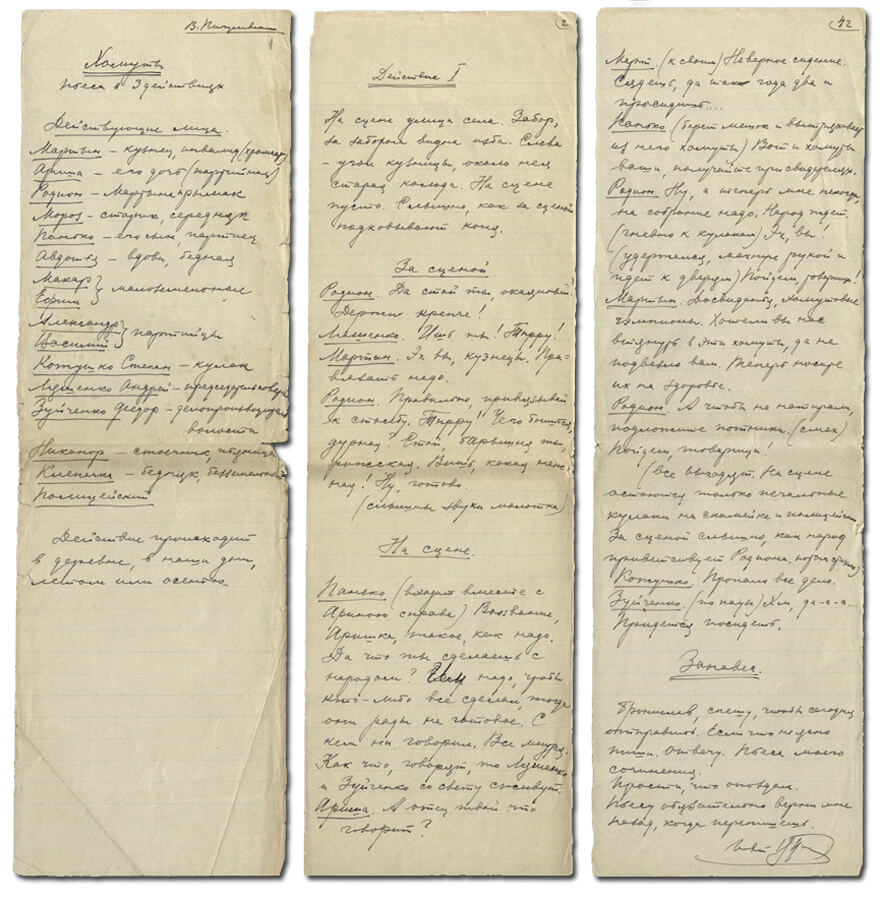 В.
1
Хомуты
пьеса в 3 действиях
Действующие лица.
Мартын – кузнец, инвалид (хромает)
Ариша – его дочь (партийная)
Родион – Мартына прымак
Мороз – старик, середняк
Панько – его сын, партиец
Авдотья – вдова, бедная
Макар
Ефрим } малоземельные
Александр
Василий } партийцы
Кожушко Степан – кулак
Лушенко Андрей – председатель
Зуйченко Федор – делопроизводитель
волости
Никанор – стоечник, пьяница
Клепачка – бедняк, безземельный
Полицейский
Действие происходит
в деревне, в наши дни,
летом или осенью
2
Действие I
На сцене улица села. Забор,
за забором видна изба. Слева
– угол кузницы, около нея
старая колода. На сцене
пусто. Слышно, как за сценой
подковывают коня.
За сценой
Родион. Да стой ты, окаянный!
Держи крепче!
Лушенко. Ишь ты! Тпрру!
Мартын. Эх вы, кузнецы. При-
вязать надо.
Родион. Правильно, привязывай
к столбу. Тпрру! Чего боишься,
дурная? Стой, барышня ты,
рижская. Вишь, какая неж-
ная! Ну, готово.
(слышны звуки молотка)
На сцене.
Панько (входит вместе с
Ариною справа) Воззвание,
Аришка, такое, как надо.
Да что ты сделаешь с
народом? Ему надо, чтобы
кто-либо все сделал, тогда
они рады на готовое. С
кем ни говорил. Все
Как что, говорят, то Лушенко
и Зуйченко со свету сживут.
Ариша. А отец твой что
говорит?
42
Март. (к своим) Неверное сидение.
Сядешь, да так года два и
просидишь...
Панько (берет мешок и вытряхивает
из него хомуты) Вот и хомуты
ваши, получайте при свидетелях.
Родион. Ну, а теперь мне некогда,
на собрание надо. Народ ждет.
(гневно к кулакам) Эх, вы!
(удержался, махнул рукой и
идет к дверям) Пойдем, товарищи!
Мартын. Досвиданья, хомутовые
чемпионы. Хотели вы нас
втянуть в эти хомуты, да не
подвезло вам. Теперь носите
их на здоровье.
Родион. А чтобы не натирали,
подложите потники. (смех)
Пойдем, товарищи!
(все выходят. На сцене
остаются только печальные
кулаки на скамейке и полицейский
За сценой слышно, как народ
приветствует Родиона.
Кожушко. Пропало все дело.
Зуйченко. (по паузе) Хм, да-а-а
Придется посидеть.
Занавес.
Бронислав, спешу, чтобы сегодня
отправить. Если что неясно
пиши. Отвечу. Пьеса моего
сочинения.
Прости, что опоздал.
Пьесу обязательно верни мне
назад, когда перепишешь.